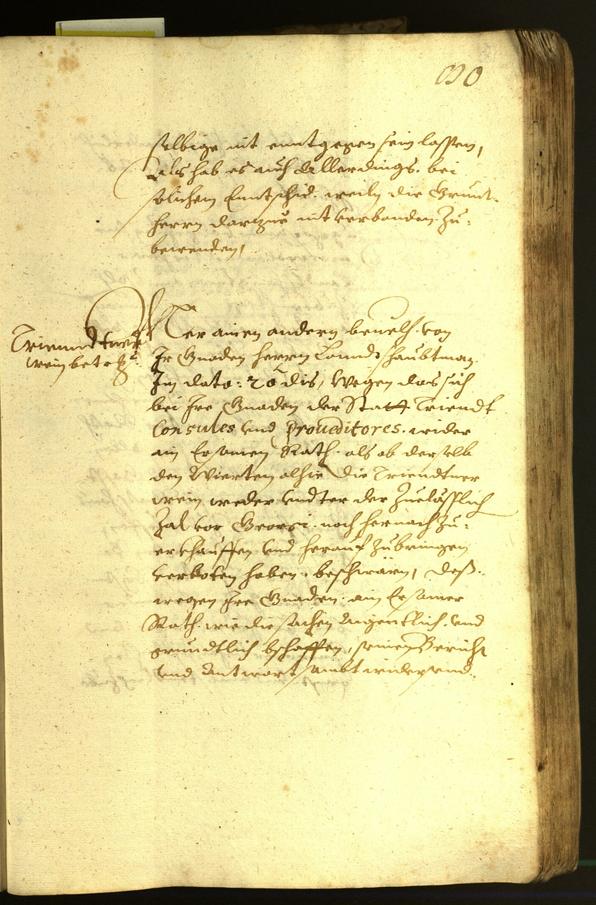 selbige nit enntgegen sein lassen,
Als hab es auch Allerdings. bei
solichem Enntschid. weiln die Grunt¬
herrn dartzue nit verbonden. Zu¬
bewenden,
Triendtner
wein betr:
Uber ainen andern beuelh. von
Ir Gnaden herrn Lanndtshaubtman
Im dato: 20 dis, Wegen das sich
bei Ire Gnaden der Statt Triendt
Consules vnd Proueditores. wider
ain Ersamen Rath. als ob derselb
den Wierten alhie die Triendtner
wein weder vndter der Zuelässlich
Zal vor Georgi. noch hernach Zu¬
erkhauffen vnd herauf Zubringen
verboten haben. beschwärn, Des¬
wegen Ire Gnaden. ain Ersamer
Rath. wie die sachen Aigentlich. vnd
gründtlich bschaffen, seinen Bericht
vnd Antwort